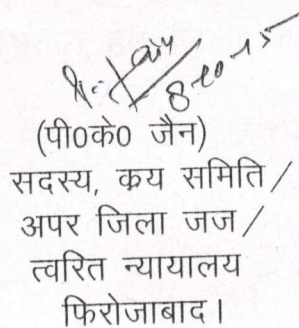 8-10-15
(पी0के0 जैन)
सदस्य, क्रय समिति /
अपर जिला जज /
त्वरित न्यायालय
फिरोजाबाद।